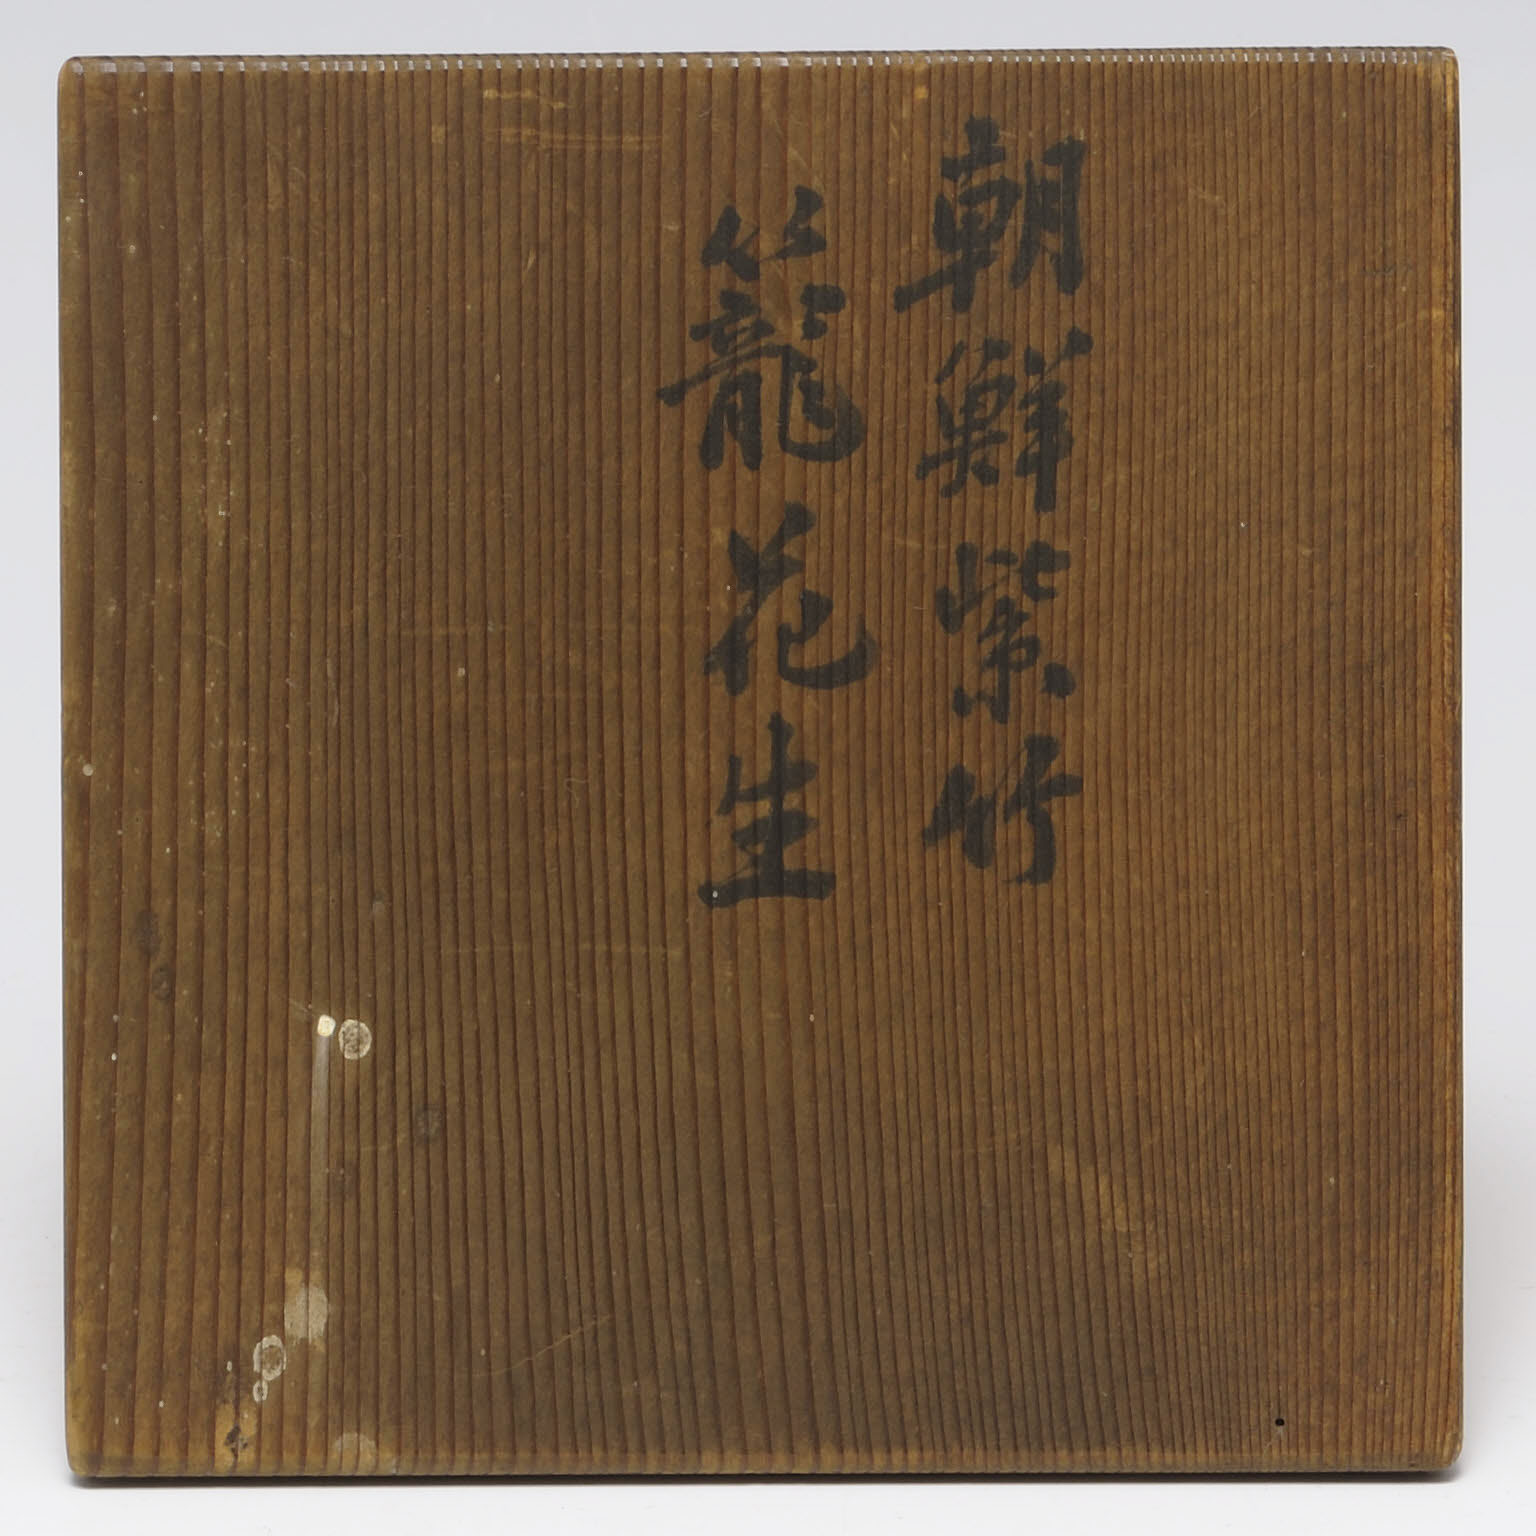 朝鮮紫竹
籠花生